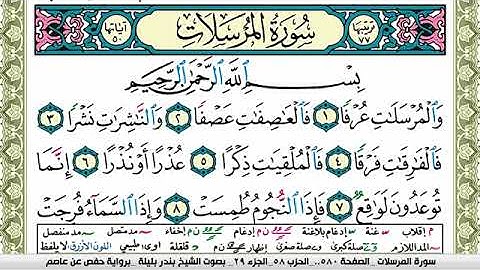 ترتيبها ٧٧ سُورَةُ المُرْسَلَاتِ آياتها ٥٠
بِسْمِ اللَّهِ الرَّحْمَٰنِ الرَّحِيمِ
وَالْمُرْسَلَاتِ عُرْفًا ١ فَالْعَاصِفَاتِ عَصْفًا ٢ وَالنَّاشِرَاتِ نَشْرًا ٣
فَالْفَارِقَاتِ فَرْقًا ٤ فَالْمُلْقِيَاتِ ذِكْرًا ٥ عُذْرًا أَوْ نُذْرًا ٦ إِنَّمَا
تُوعَدُونَ لَوَاقِعٌ ٧ فَإِذَا النُّجُومُ طُمِسَتْ ٨ وَإِذَا السَّمَاءُ فُرِجَتْ
م إقلاب غنة إدغام بلاغنة إدغام إخفاء مد متصل مد منفصل
المد اللازم صلة كبرى صلة صغرى إظهار قلقلة طبيعي اللون الأزرق لا يلفظ
سورة المرسلات - الصفحة ٥٨٠.. الحزب ٥٨ .الجزء ٢٩ .بصوت الشيخ بندر بليلة .برواية حفص عن عاصم